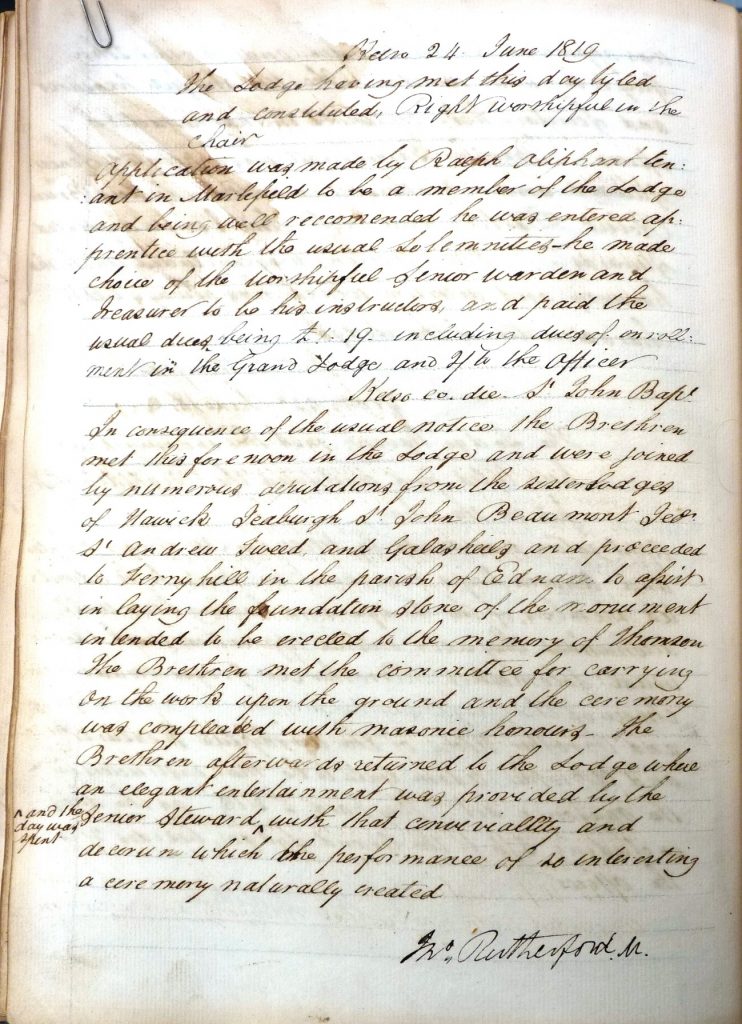 Kelso 24 June 1819
The Lodge having met this day tyled
and constituted, Right worshipful in the
chair
Application was made by Ralph Oliphant ten:
:ant in Marlefield to be a member of the Lodge
and being well reccomended he was entered ap:
prentice with the usual Solemnities – he made
choice of the Worshipful Senior warden and
Treasurer to be his instructors, and paid the
usual dues being 19 including dues of enroll:
ment in the Grand Lodge and to the Officer
Kelso eo. die. St John Bapt
In consequence of the usual notice the Brethren
met this forenoon in the Lodge and were joined
by numerous deputations from the sister Lodges
of Hawick Jedburgh St John Beaumont
St Andrew Tweed, and Galashiels and proceeded
to Fernyhill in the parish of Ednam to assist
in laying the foundation stone of the monument
intended to be erected to the memory of Thomson
The Brethren met the committee for carrying
on the work upon the ground and the ceremony
was compleated with masonic honours – The
Brethren afterwards returned to the Lodge where
an elegant entertainment was provided by the
^ and the
day was
spent
Senior Steward ^ with that conviviallity and
decorum which the performance of so interesting
a ceremony naturally created
Jno. Rutherford. M.